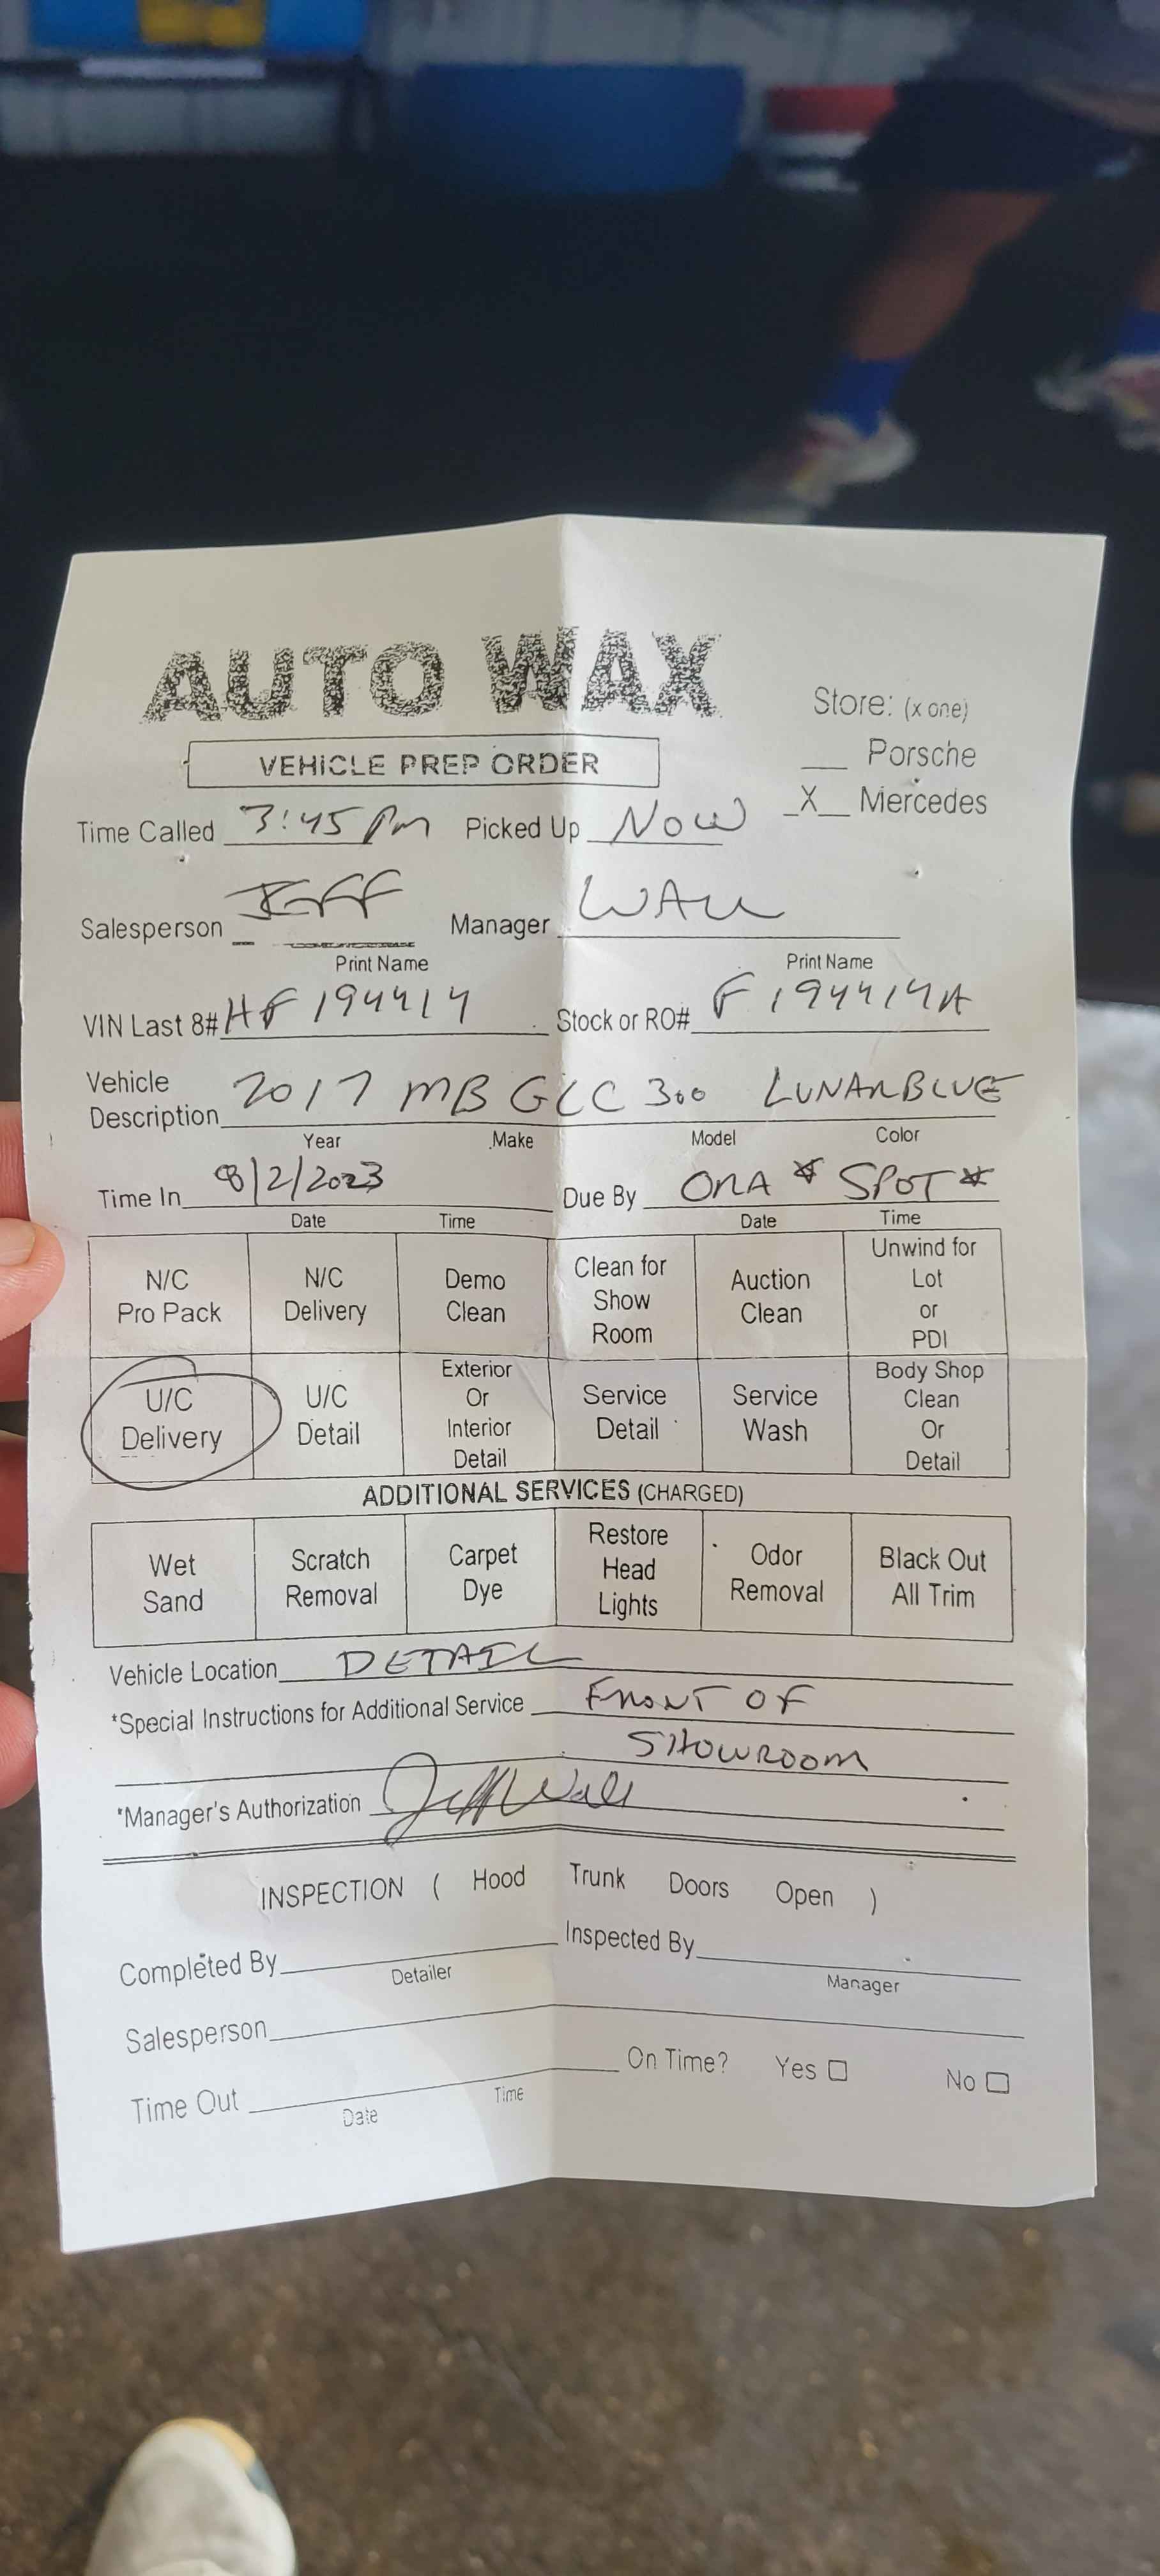 AUTO WAX
Store: (x one)
VEHICLE PREP ORDER
__ Porsche
_X_ Mercedes
Time Called 3:45 pm Picked Up NOW
Salesperson JEFF Manager WALL
Print Name Print Name
VIN Last 8# HF194414 Stock or RO# F194414A
Vehicle
Description 2017 MB GLC 300 LUNAR BLUE
Year Make Model Color
Time In 8/2/2023 Due By ONA * SPOT *
Date Time Date Time
N/C
Pro Pack
N/C
Delivery
Demo
Clean
Clean for
Show
Room
Auction
Clean
Unwind for
Lot
or
PDI
U/C
Delivery
U/C
Detail
Exterior
Or
Interior
Detail
Service
Detail
Service
Wash
Body Shop
Clean
Or
Detail
ADDITIONAL SERVICES (CHARGED)
Wet
Sand
Scratch
Removal
Carpet
Dye
Restore
Head
Lights
Odor
Removal
Black Out
All Trim
Vehicle Location DETAIL
*Special Instructions for Additional Service FRONT OF
SHOWROOM
*Manager's Authorization Jeff Wall
INSPECTION ( Hood Trunk Doors Open )
Completed By Inspected By
Detailer Manager
Salesperson
Time Out On Time? Yes □ No □
Date Time